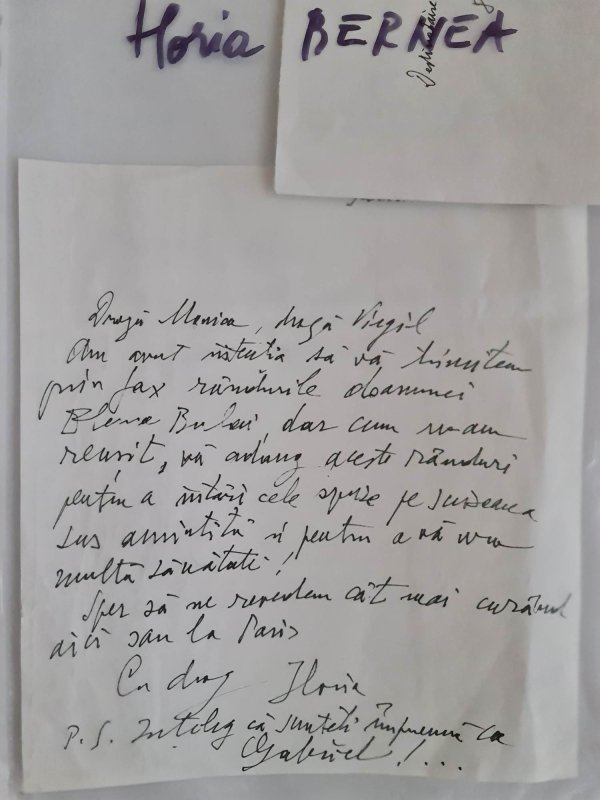 Horia BERNEA
Destinataire
Dragă Monica, dragă Virgil
Am avut intenția să vă trimitem
prin fax rândurile doamnei
Elena Bulai, dar cum n-am
reușit, vă adaug aceste rânduri
pentru a întări cele spuse pe
sus amintită și pentru a vă ura
multă sănătate!
Sper să ne revedem cât mai curând
aici sau la Paris
Cu drag Horia
P.S. Înțeleg că sunteți împreună cu
Gabriel!...